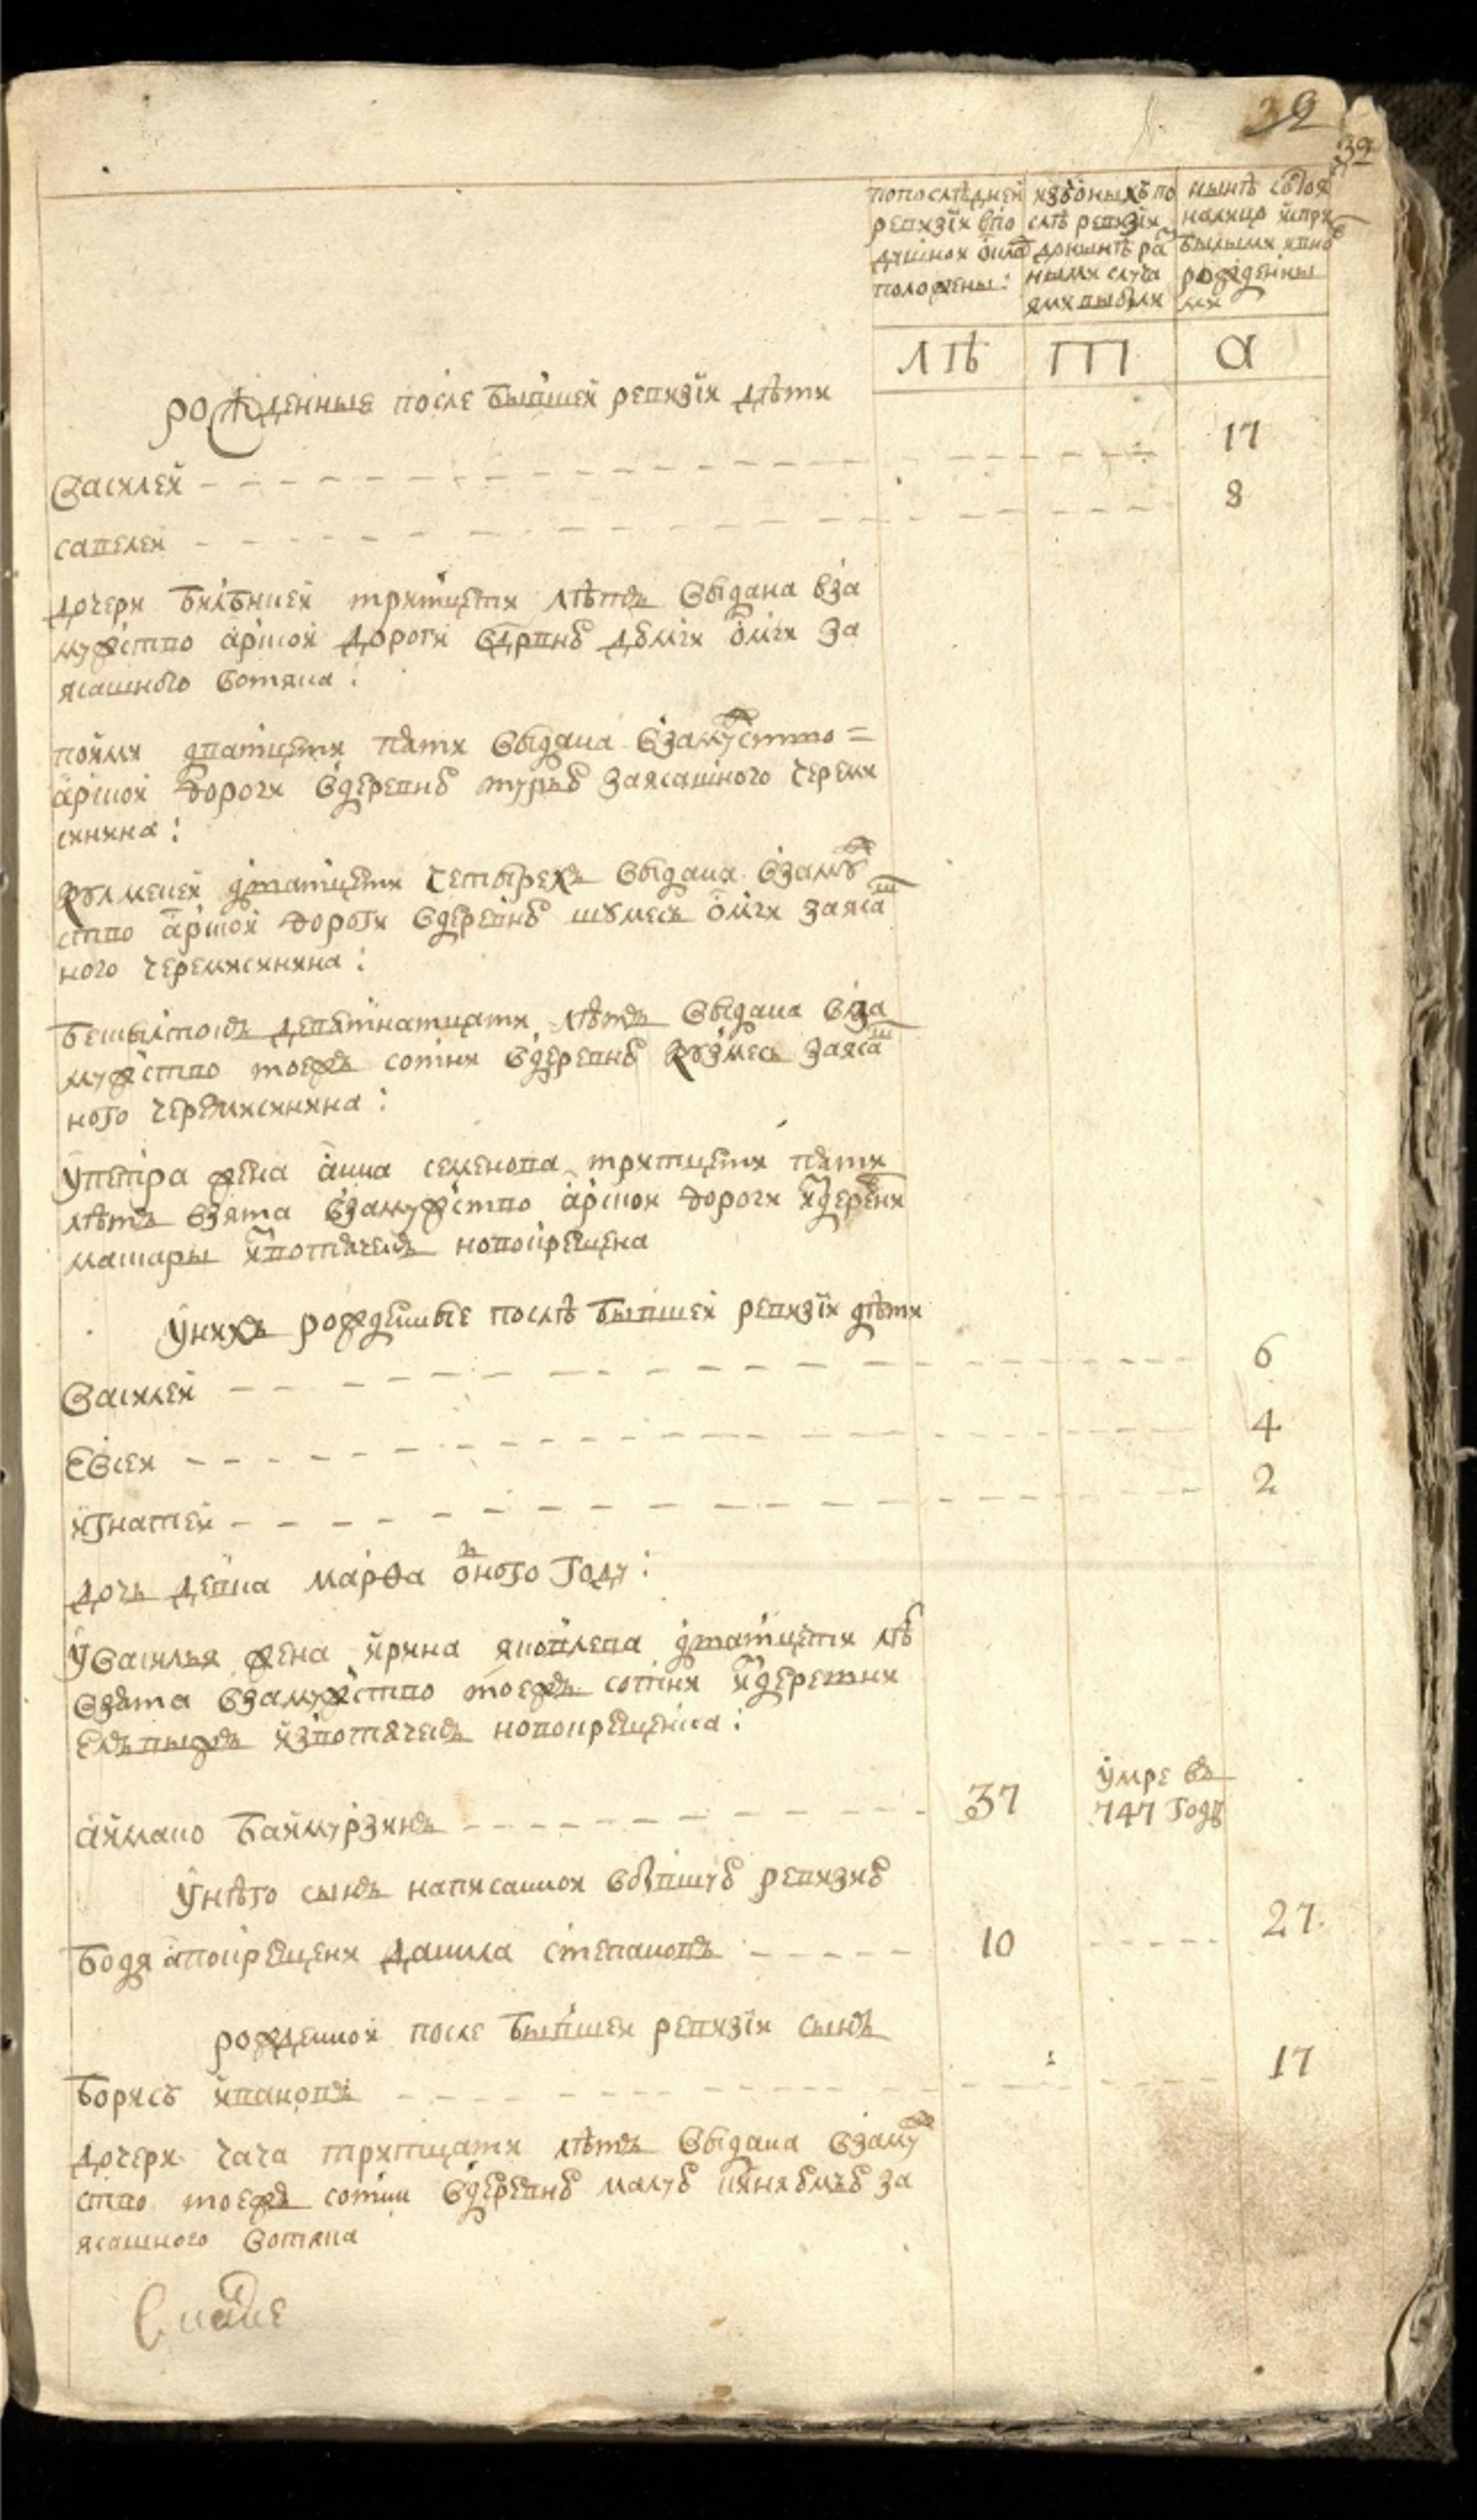 32
32
попоследней
ревизіи впо
душной окладъ
положены:
изооныхъ по
слѣ ревизіи
донынѣ раз
ными случа
ями выбыли
нынѣ состоя
налицо испри
былыми ивно
рожденны
ми
лѣ
а
рожденные после бывшей ревизіи дѣти
Василей 17
савелей 8
дочери тритцети лѣтъ выдана вза
мужство арской дороги омги за
ясашного вотяка :
дватцети пяти выдана взамужство =
арской дороги вдеревню турью заясашного череми
синина :
кулмекей дватцети четырехъ выдана взамуж
ство арской дороги вдеревню шумесь омги заясаш
ного черемисинина :
девятнатцати лѣтъ выдана вза
мужство тоежъ сотни вдеревню кузмесь заясаш
ного черемисинина :
упетра жена анна семенова тритцети пяти
лѣтъ взята взамужство арской дороги издеревни
машары извотячекъ новокрещена
унихъ рожденные послѣ бывшей ревизіи дѣти
Василей 6
Евсей 4
игнатей 2
дочь девка марѳа одного году :
уВасилья жена ирина яковлева дватцети лѣ
взята взамужство тоежъ сотни издеревни
извотячекъ новокрещенка :
аймако баймурзинъ 37 умре въ
747 году
унѣго сынъ написанной вбывшую ревизию
бодя авокрещени данила степановъ 10 27
рожденной после бывшей ревизіи сынъ
борисъ ивановъ 17
дочери чача тритцати лѣтъ выдана взамуж
ство тоежъ сотни вдеревню малую за
ясашного вотяка